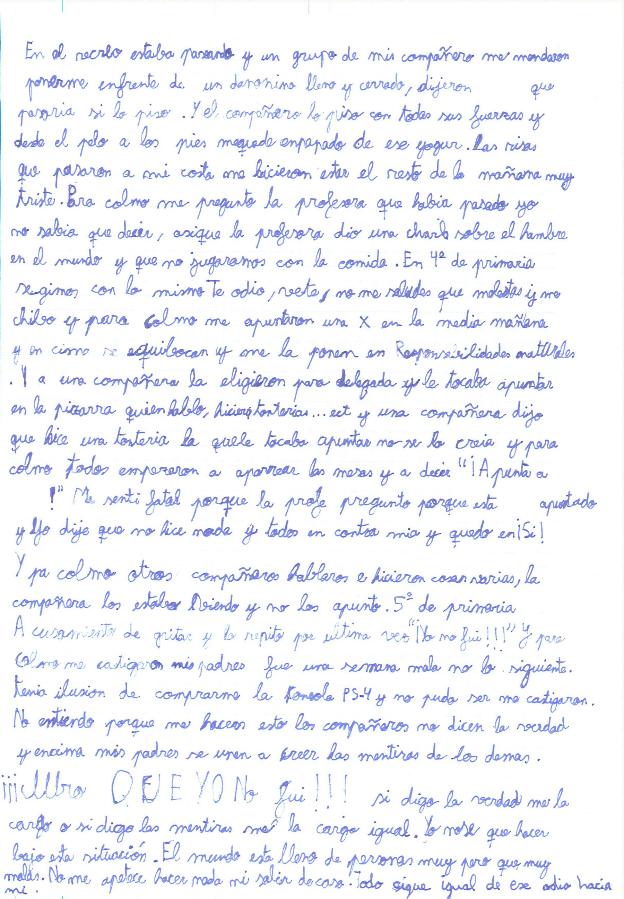 En el recreo estaba paseando y un grupo de mis compañero me mandaron
ponerme enfrente de un danonino lleno y cerrado, dijeron que
pasaria si lo piso. Y el compañero lo piso con todas sus fuerzas y
desde el pelo a los pies me quede enpapado de ese yogur. Las risas
que pasaron a mi costa me hicieron estar el resto de la mañana muy
triste. Para colmo me pregunto la profesora que habia pasado yo
no sabia que decir, asique la profesora dio una charla sobre el hambre
en el mundo y que no jugaramos con la comida. En 4º de primaria
seginos con lo mismo Te odio, vete, no me saludes que molestas y me
chibo y para colmo me apuntaron una X en la media mañana
y en cima se equibocan y me la ponen en Responsabilidades
. Y a una compañera la eligieron para delegada y le tocaba apuntar
en la pizarra quien hablo, hiciera tonterias... ect y una compañera dijo
que hice una tonteria la quele tocaba apuntar no se lo creia y para
colmo todos empezaron a aporrear las mesas y a decir "¡Apunta a
!" Me senti fatal porque la profe pregunto porque esta apuntado
y Yo dije que no hice nada y todos en contra mia y quedo en ¡Si!
Y pa colmo otros compañeros hablaros e hicieron cosas varias, la
compañera los estaba viendo y no los apunto. 5º de primaria
Acusamiento de gritar y lo repito por ultima vez "¡Yo no fui!!!" Y para
colmo me castigaron mis padres fue una semana mala no lo siguiente.
tenia ilusion de comprarme la consola PS-4 y no pudo ser me castigaron.
No entiendo porque me hacen esto los compañeros no dicen la verdad
y encima mis padres se unen a creer las mentiras de los demas.
QUE YO No fui!!! si digo la verdad me la
cargo o si digo las mentiras me la cargo igual. Yo nose que hacer
bajo esta situación. El mundo esta lleno de personas muy pero que muy
malas. No me apetece hacer nada ni salir de casa. Todo sigue igual de ese odio hacia
mi.